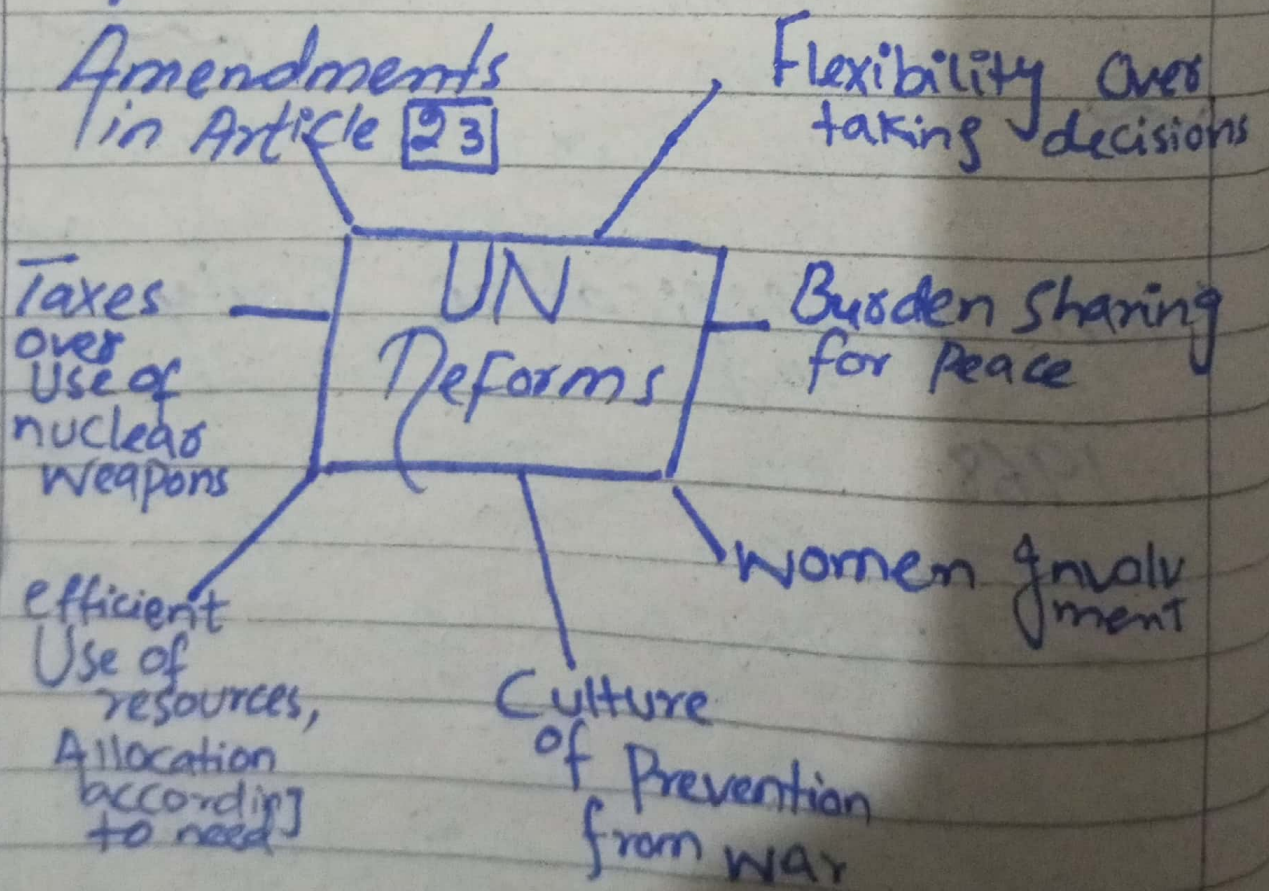 Amendments
in Article 23
Flexibility Over
taking decisions
UN
Reforms
Taxes
over
Use of
nuclear
weapons
Burden Sharing
for Peace
Women Involv
ment
efficient
Use of
resources,
Allocation
according
to need
Culture
of Prevention
from war